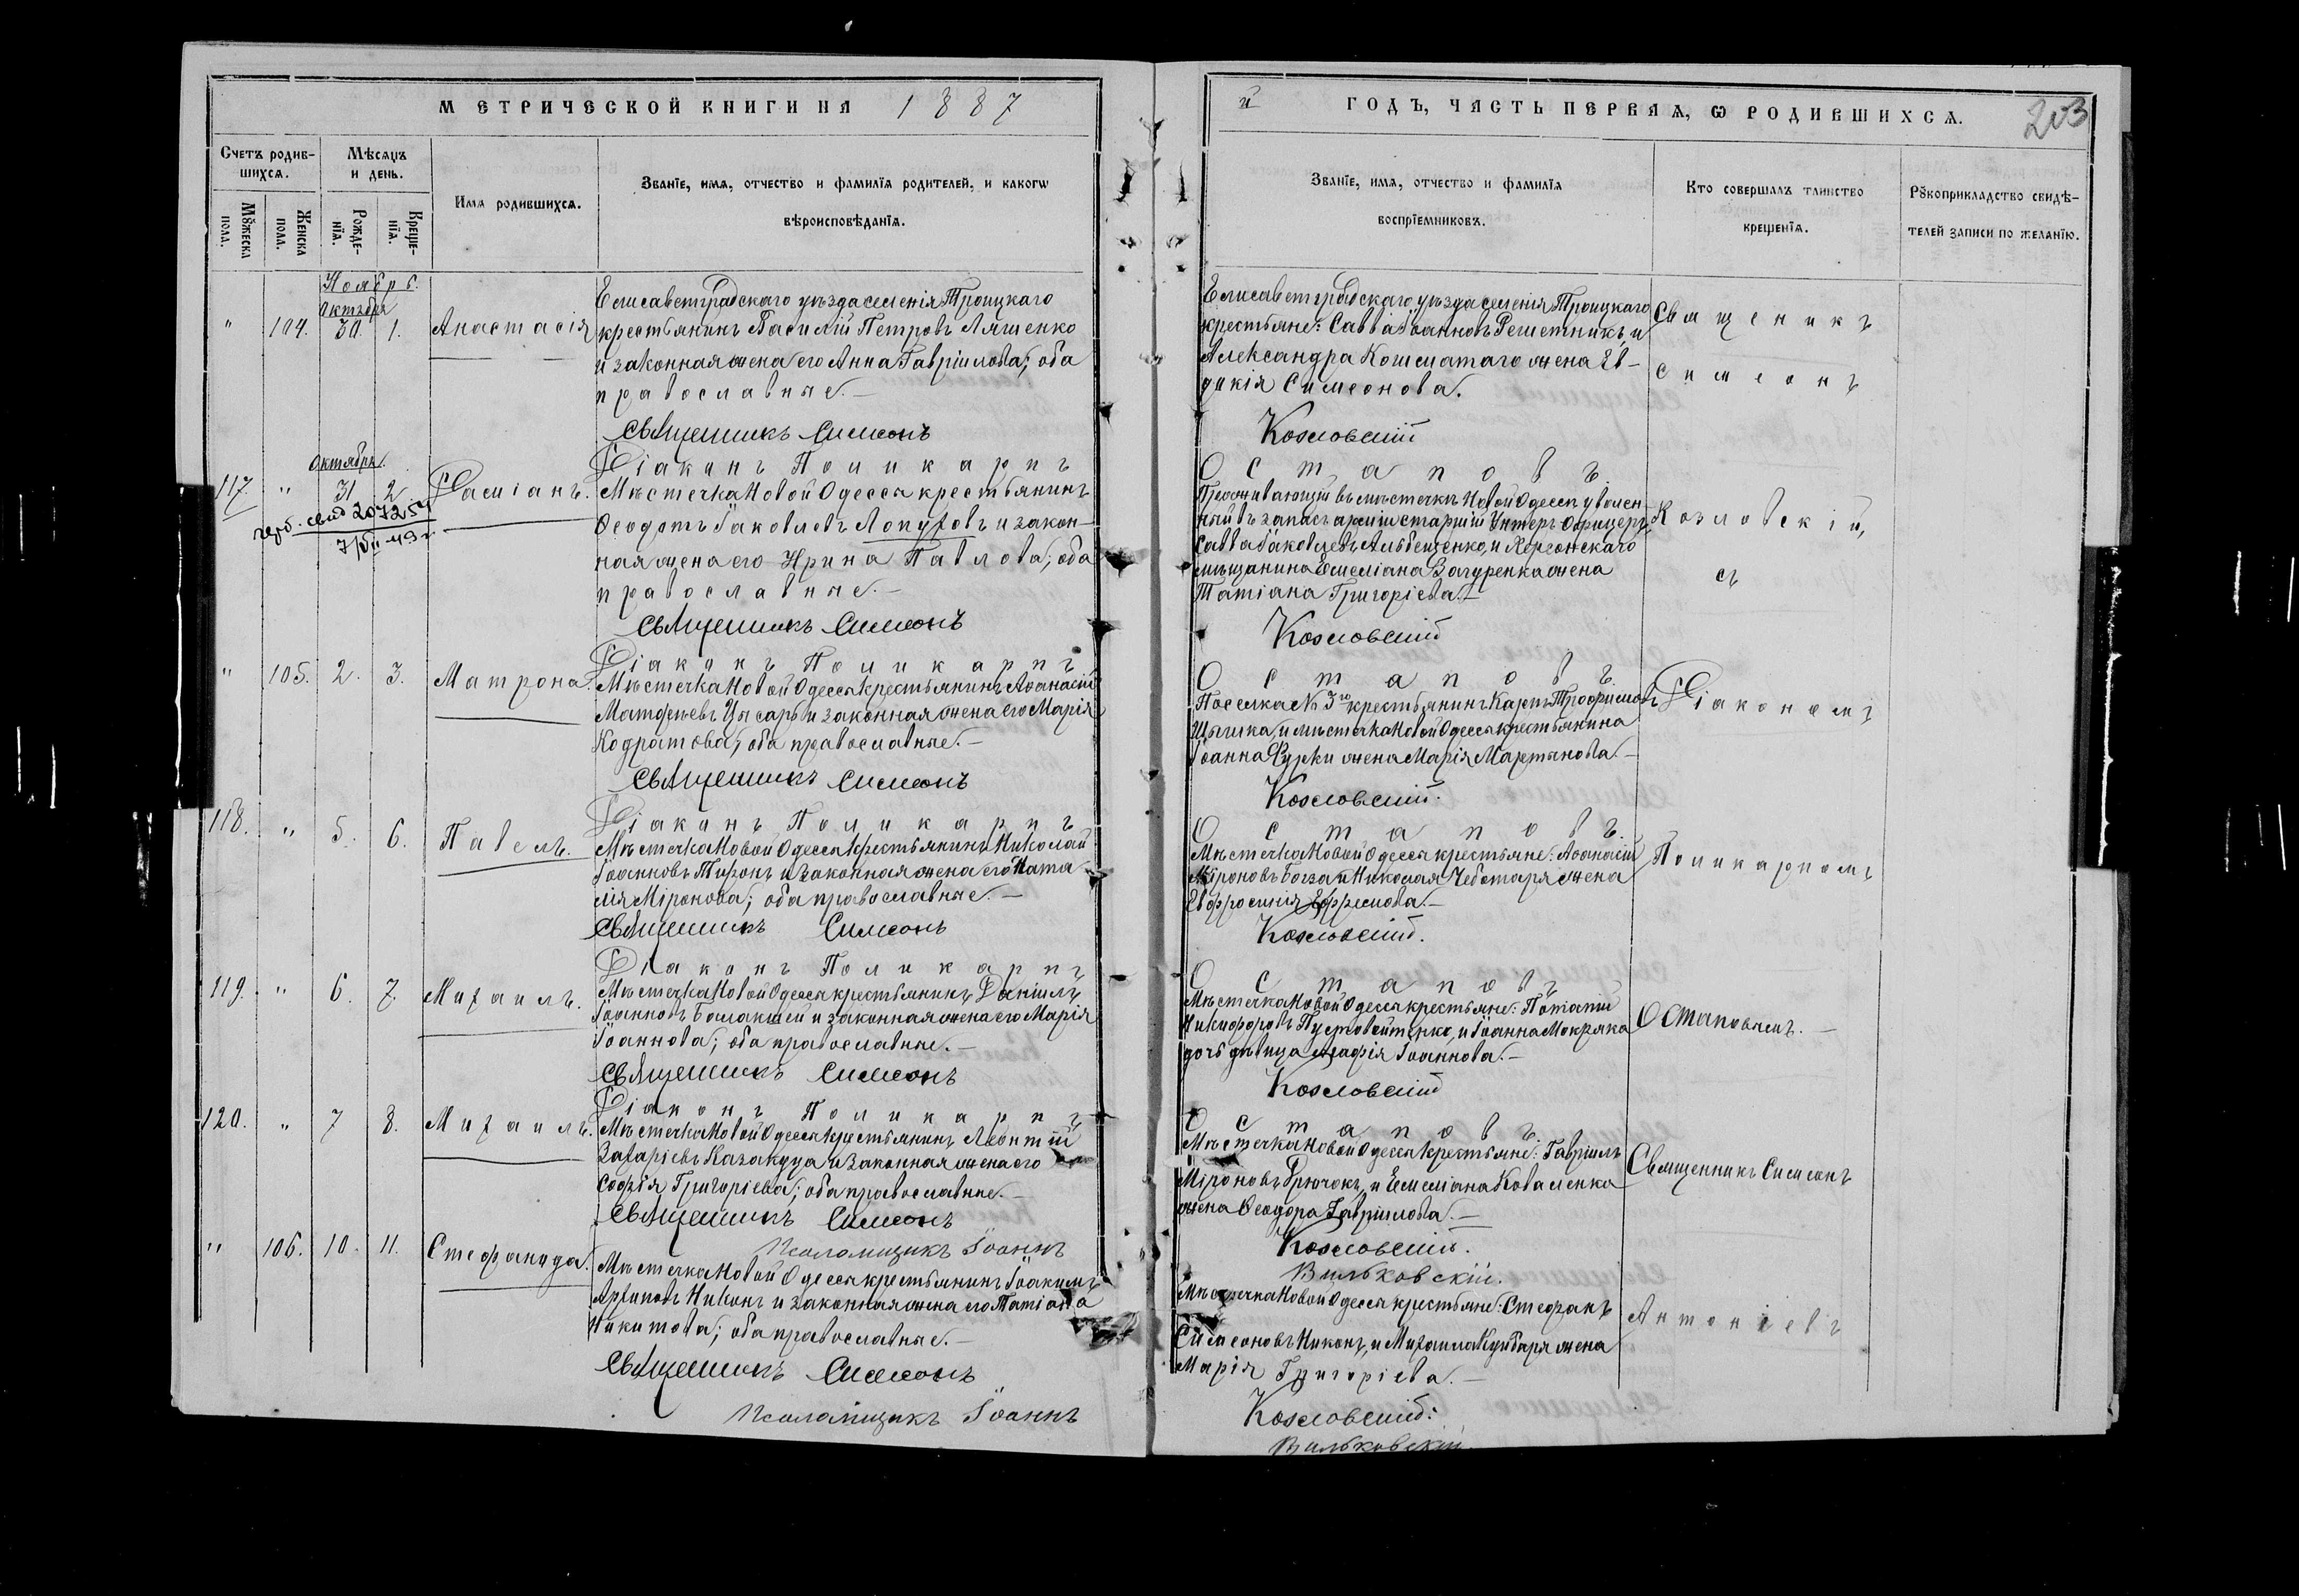 МЕТРИЧЕСКОЙ КНИГИ НА 1887
Счетъ родив-
шихся.
Мѣсяцъ
и день.
Имя родившихся.
Званїе, имя, отчество и фамилїя родителей, и какогѡ
вѣроисповѣданїя.
Мꙋжеска
пола.
Женска
пола.
Рожде-
нїя.
Креще-
нїя.
Ноябрь.
Октября
" 104. 30. 1. Анастасія
Елисаветградскаго уѣзда селенія Троицкаго
крестьянинъ Василій Петровъ Ляшенко
и законная жена его Анна Гавріилова; оба
православные.—
Священникъ Симеонъ
Діаконъ Поликарпъ
Октября.
117. " 31 2. Даміанъ.
Мѣстечка Новой Одессы крестьянинъ
Ѳеодотъ Іаковлевъ Лопуховъ и закон-
ная жена его Ирина Павлова; оба
православные.—
свид 207254
Священникъ Симеонъ
Діаконъ Поликарпъ
" 105. 2. 3. Матрона.
Мѣстечка Новой Одессы крестьянинъ Аѳанасій
Матѳеевъ Цысарь и законная жена его Марія
Кодратова; оба православные.—
Священникъ Симеонъ
Діаконъ Поликарпъ
118. " 5. 6. Павелъ.
Мѣстечка Новой Одессы крестьянинъ Николай
Іоанновъ Тихонъ и законная жена его Ната-
лія Міронова; оба православные.—
Священникъ Симеонъ
Діаконъ Поликарпъ
119. " 6. 7. Михаилъ.
Мѣстечка Новой Одессы крестьянинъ Даніилъ
Іоанновъ и законная жена его Марія
Іоаннова; оба православные.—
Священникъ Симеонъ
Діаконъ Поликарпъ
120. " 7 8. Михаилъ.
Мѣстечка Новой Одессы крестьянинъ Леонтій
Захаріевъ Казакуца и законная жена его
Софія Григоріева; оба православные.—
Священникъ Симеонъ
Псаломщикъ Іоаннъ
" 106. 10. 11. Стефанида.
Мѣстечка Новой Одессы крестьянинъ Іоакимъ
Архиповъ Никонъ и законная жена его Татіана
Никитова; оба православные.—
Священникъ Симеонъ
Псаломщикъ Іоаннъ
й ГОДЪ, ЧАСТЬ ПЕРВАЯ, Ѡ РОДИВШИХСЯ. 203
Званїе, имя, отчество и фамилїя
воспрїемниковъ.
Кто совершалъ таинство
крещенїя.
Рꙋкоприкладство свидѣ-
телей записи по желанїю.
Елисаветградскаго уѣзда селенія Троицкаго
крестьяне: Савва Іоанновъ Решетникъ, и
Александра Кошматаго жена Ев-
докія Симеонова.
Козловскій
Остаповъ.
Проживающій въ мѣстечкѣ Новой Одессѣ уволен-
ный въ запасъ арміи старшій Унтеръ Офицеръ
Савва Іаковлевъ и Херсонскаго
мѣщанина Емеліана Загуренка жена
Татіана Григоріева.—
Козловскій
Остаповъ.
Поселка № 3го крестьянинъ Карпъ Трофимовъ
и мѣстечка Новой Одессы крестьянина
Іоанна Фурки жена Марія Мартынова.—
Козловскій.
Остаповъ.
Мѣстечка Новой Одессы крестьяне: Аѳанасій
Міроновъ и Николая Чеботаря жена
Евфросинія Ефремова.—
Козловскій.
Остаповъ
Мѣстечка Новой Одессы крестьяне: Потапій
Никифоровъ Пустовойтенко, и Іоанна Мокряка
дочь дѣвица Іоаннова.—
Козловскій
Остаповъ.
Мѣстечка Новой Одессы крестьяне: Гавріилъ
Міроновъ Крючокъ, и Емеліана Коваленка
жена Ѳеодора Гавріилова.—
Козловскій.
Вильковскій.
Мѣстечка Новой Одессы крестьяне: Стефанъ
Симеоновъ Никонъ, и Михаила жена
Марія Григоріева.—
Козловскій.
Вильковскій.
Священникъ
Симеонъ
Козловскій,
съ
Діакономъ
Поликарпомъ
Остаповымъ.—
Священникъ Симеонъ
Антоніевъ